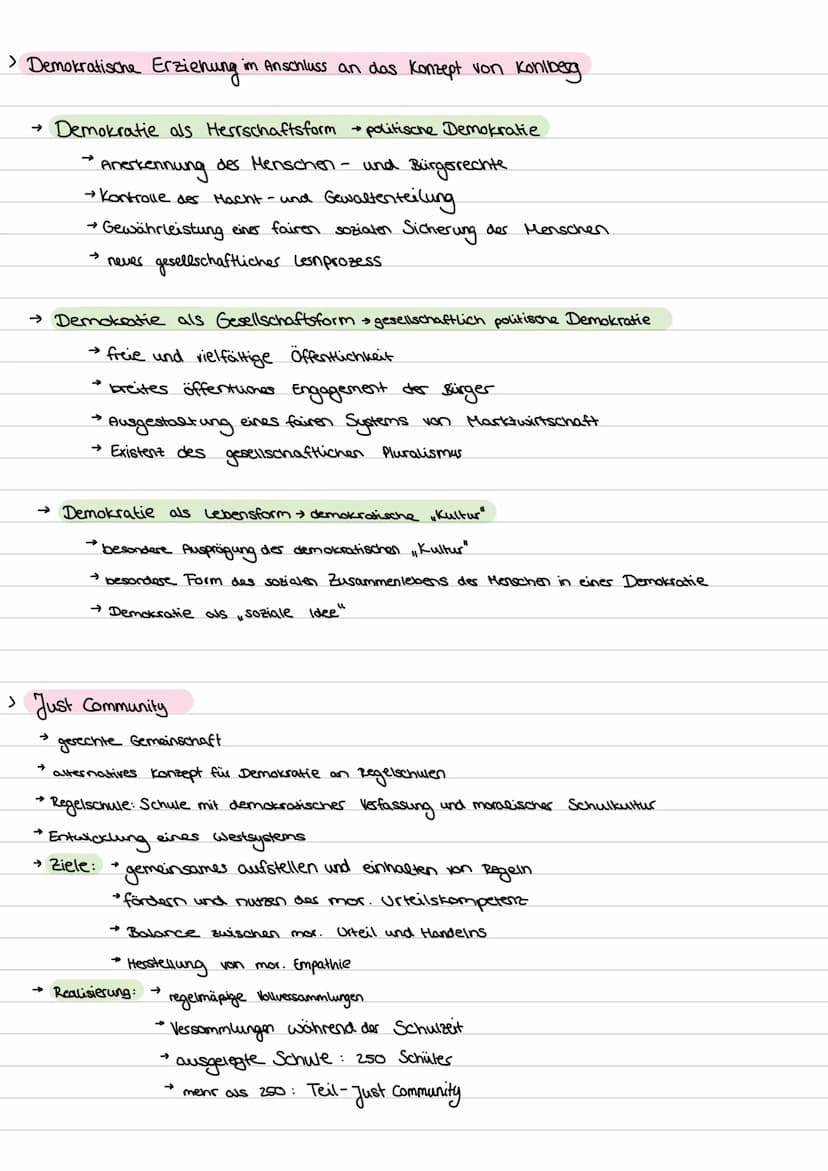 > Demokratische Erziehung im Anschluss an das Konzept von Kohlberg
→ Demokratie als Herrschaftsform → politische Demokratie
→ Anerkennung der Menschen- und Bürgerrechte
→ Kontrolle der Macht- und Gewaltenteilung
→ Gewährleistung einer fairen sozialen Sicherung der Menschen
→ neuer gesellschaftlicher Lernprozess
→ Demokratie als Gesellschaftsform → gesellschaftlich politische Demokratie
→ freie und vielfältige Öffentlichkeit
→ breites öffentliches Engagement der Bürger
→ Ausgestaltung eines fairen Systems von Marktwirtschaft
→ Existenz des gesellschaftlichen Pluralismus
→ Demokratie als Lebensform → demokratische „Kultur"
→ besondere Ausprägung der demokratischen „Kultur"
→ besondere Form des sozialen Zusammenlebens der Menschen in einer Demokratie
→ Demokratie als „soziale Idee"
> Just Community
→ gerechte Gemeinschaft
→ alternatives Konzept für Demokratie an Regelschulen
→ Regelschule: Schule mit demokratischer Verfassung und moralischer Schulkultur
→ Entwicklung eines Wertsystems
→ Ziele: → gemeinsames aufstellen und einhalten von Regeln
→ fördern und nutzen der mor. Urteilskompetenz
→ Balance zwischen mor. Urteil und Handelns
→ Herstellung von mor. Empathie
→ Realisierung: → regelmäßige Vollversammlungen
→ Versammlungen während der Schulzeit
→ ausgelegte Schule: 250 Schüler
→ mehr als 250: Teil-Just Community